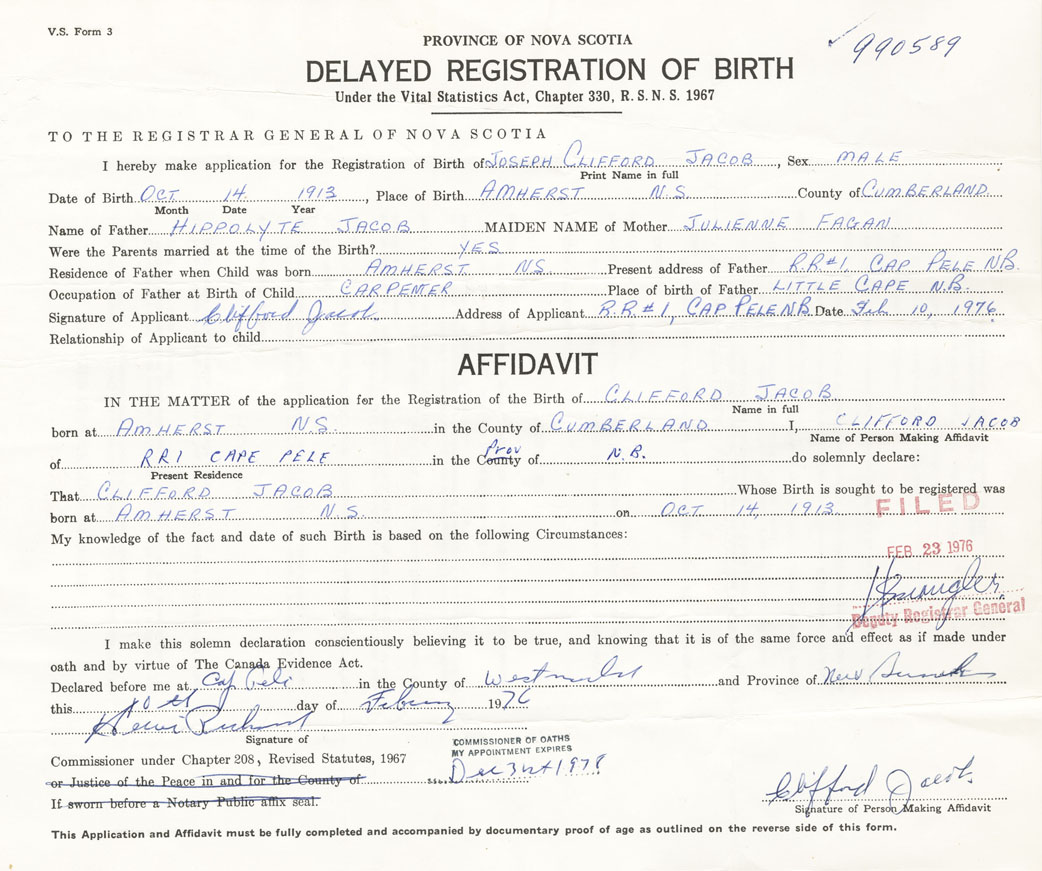 V.S. Form 3
990589
PROVINCE OF NOVA SCOTIA
DELAYED REGISTRATION OF BIRTH
Under the Vital Statistics Act, Chapter 330, R. S. N. S. 1967
TO THE REGISTRAR GENERAL OF NOVA SCOTIA
I hereby make application for the Registration of Birth of JOSEPH CLIFFORD JACOB, Sex MALE
Print Name in full
Date of Birth OCT 14 1913, Place of Birth AMHERST N.S. County of CUMBERLAND
Month Date Year
Name of Father HIPPOLYTE JACOB MAIDEN NAME of Mother JULIENNE FAGAN
Were the Parents married at the time of the Birth? YES
Residence of Father when Child was born AMHERST NS Present address of Father R.R#1, CAP PELE NB.
Occupation of Father at Birth of Child CARPENTER Place of birth of Father LITTLE CAPE N.B.
Signature of Applicant Clifford Jacob Address of Applicant R.R.#1, CAP PELE NB Date Feb 10, 1976
Relationship of Applicant to child
AFFIDAVIT
IN THE MATTER of the application for the Registration of the Birth of CLIFFORD JACOB
Name in full
born at AMHERST NS. in the County of CUMBERLAND I, CLIFFORD JACOB
Name of Person Making Affidavit
of RR1 CAPE PELE in the County Prov of N.B. do solemnly declare:
Present Residence
That CLIFFORD JACOB Whose Birth is sought to be registered was
born at AMHERST N.S. on OCT 14, 1913
FILED
My knowledge of the fact and date of such Birth is based on the following Circumstances:
FEB 23 1976
Deputy Registrar General
I make this solemn declaration conscientiously believing it to be true, and knowing that it is of the same force and effect as if made under
oath and by virtue of The Canada Evidence Act.
Declared before me at Cap Pele in the County of Westmorland and Province of New Brunswick
this 10th day of February 1976
Signature of
Commissioner under Chapter 208, Revised Statutes, 1967
COMMISSIONER OF OATHS
MY APPOINTMENT EXPIRES
Dec 31st 1978
or Justice of the Peace in and for the County of
If sworn before a Notary Public affix seal.
Clifford Jacob
Signature of Person Making Affidavit
This Application and Affidavit must be fully completed and accompanied by documentary proof of age as outlined on the reverse side of this form.